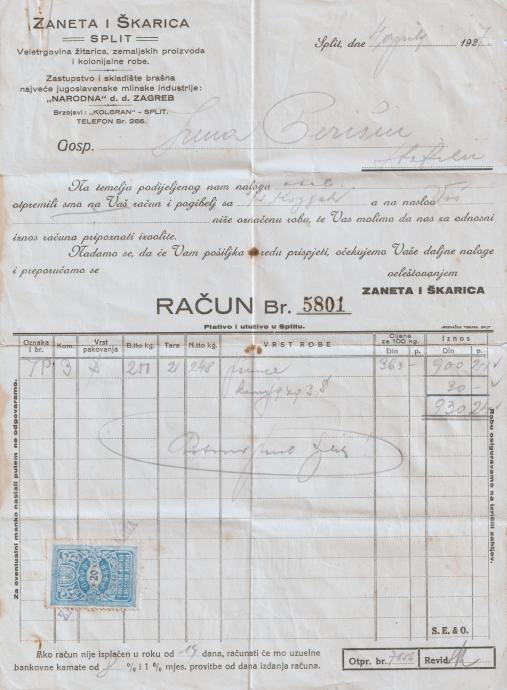 ZANETA I ŠKARICA
SPLIT
Veletrgovina žitarica, zemaljskih proizvoda
i kolonijalne robe.
Zastupstvo i skladište brašna
najveće jugoslavenske mlinske industrije:
„NARODNA" d. d. ZAGREB
Brzojavi: „KOLGRAN" - SPLIT.
TELEFON Br. 266.
Split, dne 192
Gosp.
Na temelju podijeljenog nam naloga
otpremili smo na Vaš račun i pogibelj sa a na naslov
niže označenu robu, te Vas molimo da nas za odnosni
iznos računa pripoznati izvolite.
Nadamo se, da će Vam pošiljka u redu prispjeti, očekujemo Vaše daljne naloge
i preporučamo se veleštovanjem
ZANETA I ŠKARICA
RAČUN Br. 5801
Plativo i utuživo u Splitu.
Oznaka i br. Kom. Vrst pakovanja B.tto kg. Tara N.tto kg. VRST ROBE Cijena za 100 kg. Din p. Iznos Din p.
3 250 2 248 363 - 900 24
30 -
930 24
Za eventualni manko nastali putem ne odgovaramo.
Robu osiguravamo na izričiti zahtjev.
20
S. E. & O.
Ako račun nije isplaćen u roku od dana, računati će mo uzuelne
bankovne kamate od 8 % i 1 % mjes. provitbe od dana izdanja računa.
Otpr. br. Revid.